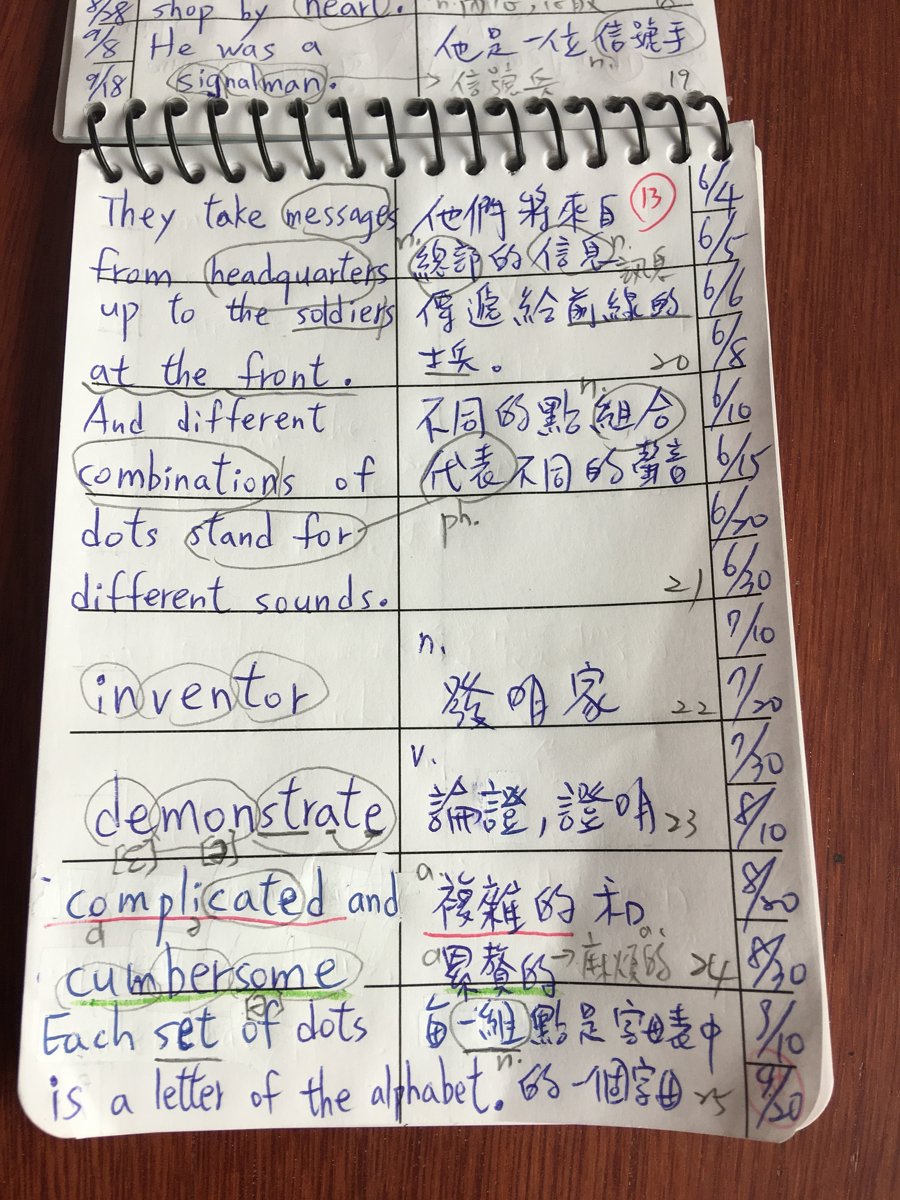 8/28 shop by heart.
9/8 He was a 他是一位信號手 n.
9/18 signalman. → 信號兵 19
They take messages 他們將來自 13 6/4
from headquarters n. 總部的信息 n. 訊息 6/5
up to the soldiers 傳遞給前線的 6/6
at the front. 士兵。 20 6/8
And different 不同的點組合 n. 6/10
combinations of 代表不同的聲音 6/15
dots stand for ph. 6/20
different sounds. 21 6/30
7/10
inventor n. 發明家 22 7/20
7/30
demonstrate v. 論證,證明 23 8/10
[ɛ] [ə]
complicated and a. 複雜的和 8/20
a ə
cumbersome a. 累贅的 → 麻煩的 a. 24 8/30
[ə]
Each set of dots 每一組點是字母表中 9/10
n.
is a letter of the alphabet. 的一個字母 25 9/20